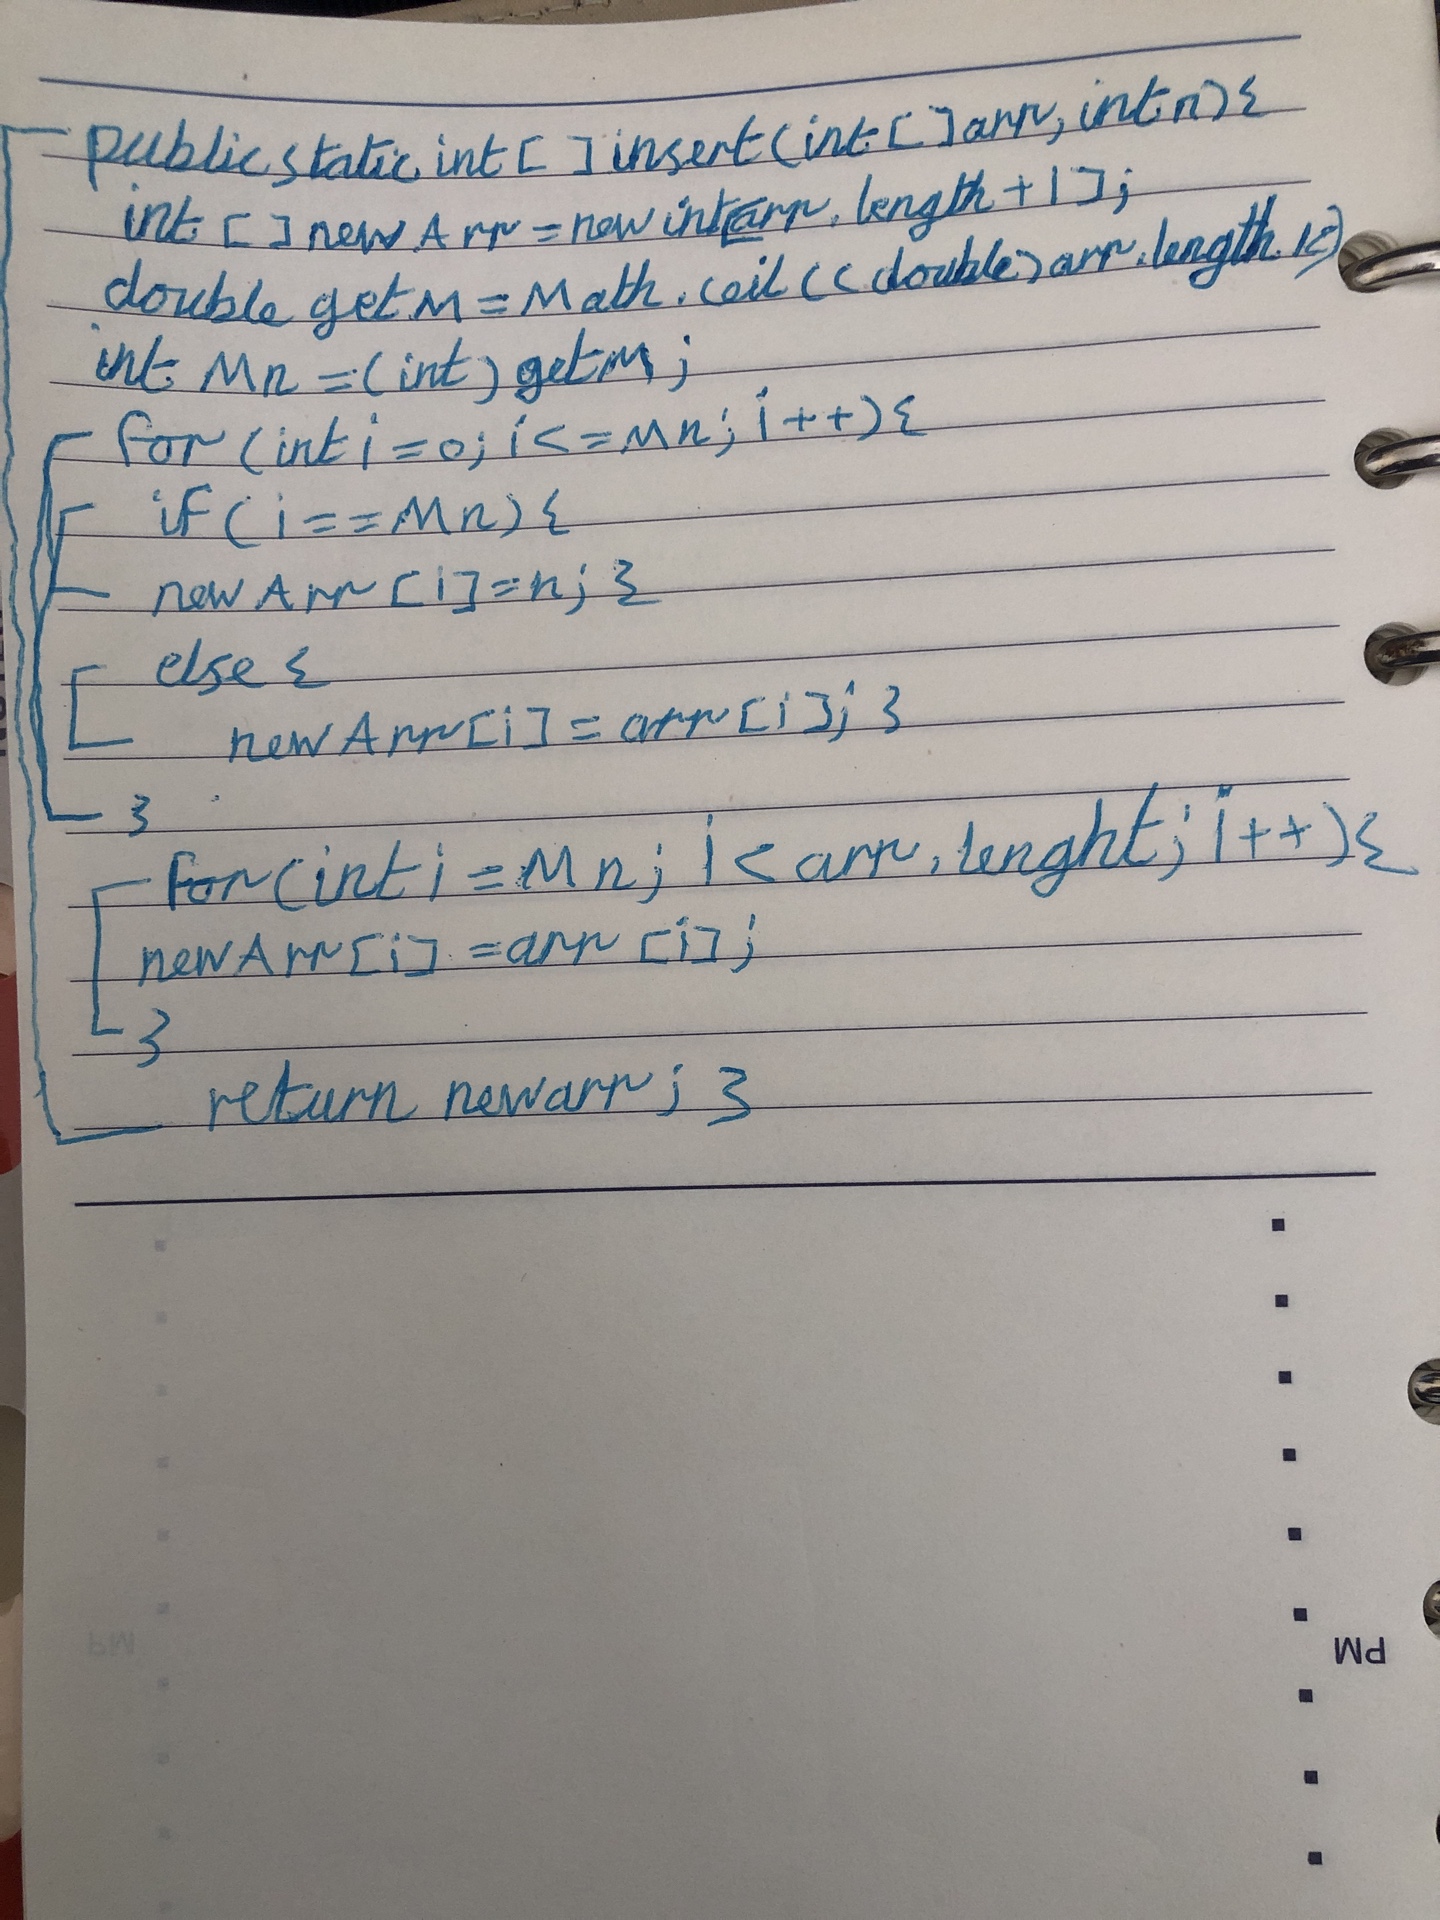 public static int[] insert(int[] arr, int n){
int[] newArr = new int[arr.length+1];
double getM = Math.ceil((double) arr.length
int Mn = (int) getM;
for (int i = 0; i <= Mn; i++){
if (i == Mn) {
newArr[i] = n; }
else {
newArr[i] = arr[i]; }
}
for (int i = Mn; i < arr.lenght; i++){
newArr[i] = arr[i];
}
return newarr; }
PM